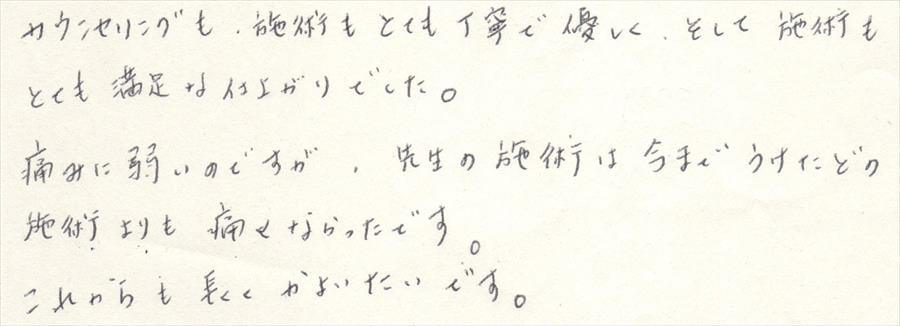 カウンセリングも、施術もとても丁寧で優しく、そして施術も
とても満足な仕上がりでした。
痛みに弱いのですが、先生の施術は今までうけたどの
施術よりも痛くなかったです。
これからも長くかよいたいです。